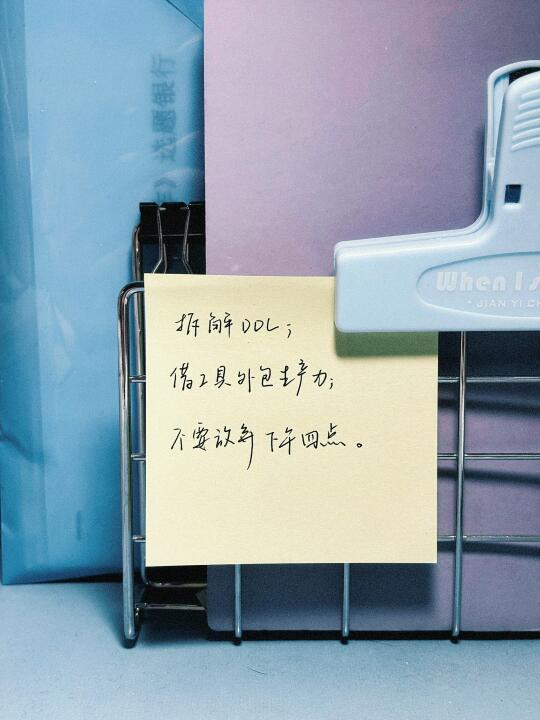 拆解DDL；
借工具外包生产力；
不要放弃下午四点。
When I s
· JIAN YI CH
》选题银行